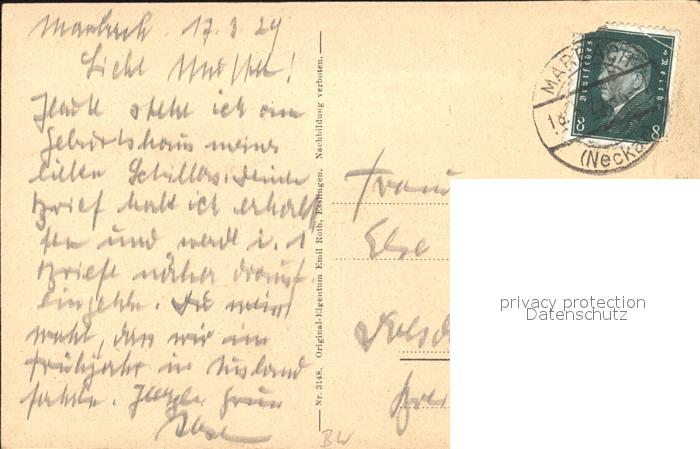 Marbach. 17.3.29
Heute stehe ich am
Geburtshaus meines
Schillers. Deinen
Brief habe ich erhal-
ten und werd i. 1
Briefe näher darauf
eingehen. Du weißt
wohl, dass wir im
Frühjahr in Ausland
fahren. Herzl. Grüße
Nr. 3148. Original-Eigentum Emil Roth, Esslingen. Nachbildung verboten.
MARBACH
18
(Neckar
Deutsches Reich
8 8
Frau
Else
Dresd
BW
privacy protection
Datenschutz